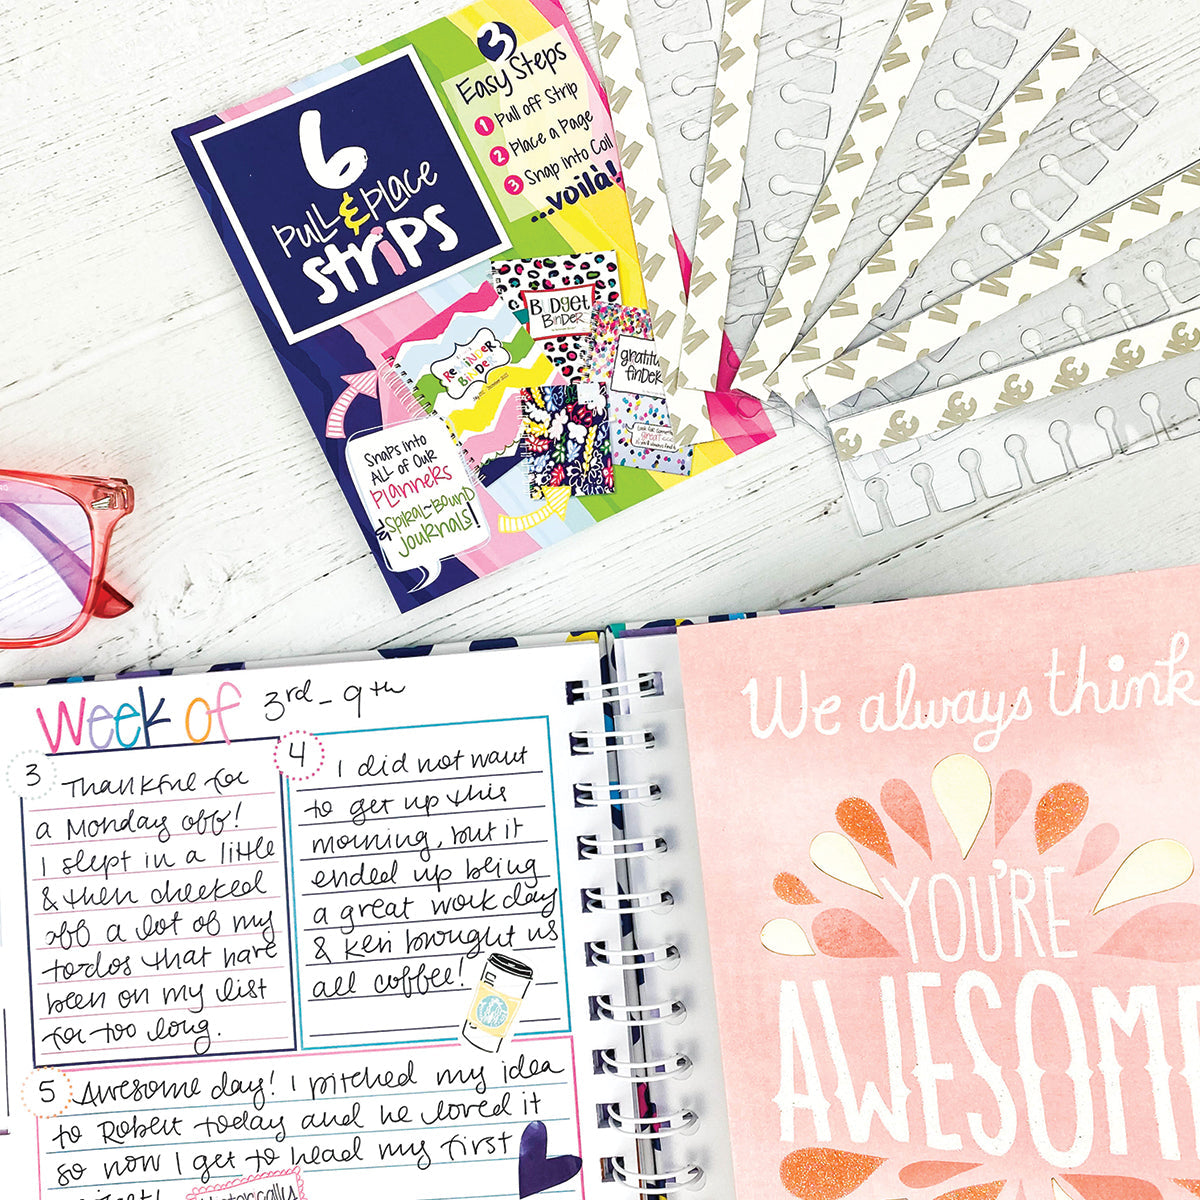 6
Pull & Place
Strips
3
Easy Steps
1 Pull off Strip
2 Place a Page
3 Snap into Coil
...voilà!
Budget
Binder
Reminder
Binder
gratitu
finder
Snaps into
ALL of our
Planners
& Spiral-Bound
Journals!
Week of 3rd - 9th
3 Thankful for
a Monday off!
I slept in a little
& then checked
off a lot of my
to-dos that have
been on my list
for too long.
4 I did not want
to get up this
morning, but it
ended up being
a great work day
& Keri brought us
all coffee!
5 Awesome day! I pitched my idea
to Robert today and he loved it
so now I get to head my first
Historically
We always think
YOU'RE
AWESOME